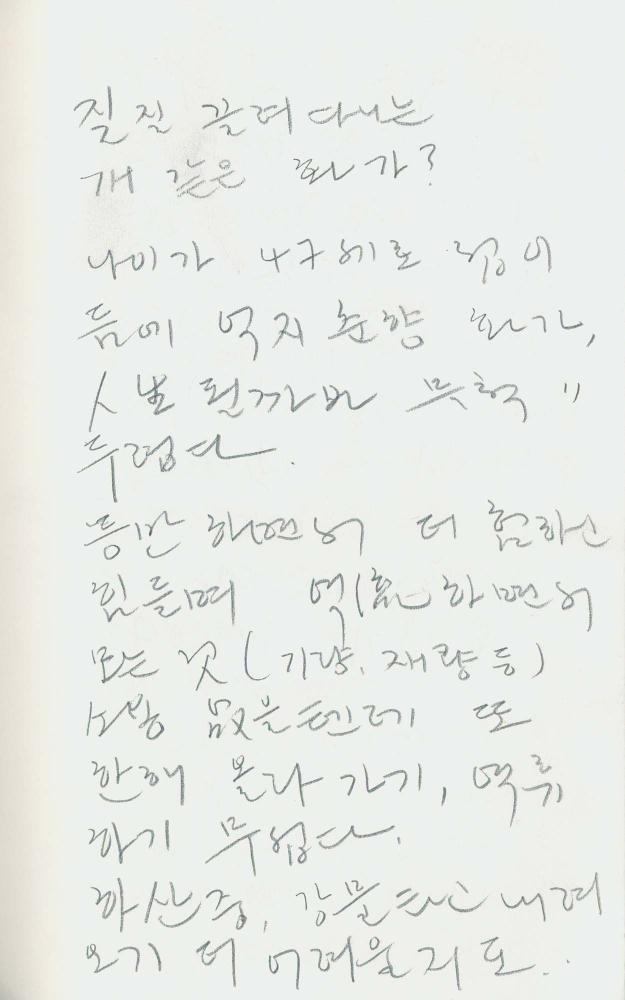 질질 끌려 다니는
개 같은 화가?
나이가 47세로 넘어
듬에 억지 춘향 화가,
人生 될까봐 무척〃
두렵다.
등반 하면서 더 험하고
힘들며 역(力) 하면서
모든 것(기량, 재량 등)
소용 없을텐데 또
한해 올라 가기, 역류
하기 무섭다.
하산중, 강물 타고 내려
오기 더 어려울지도..